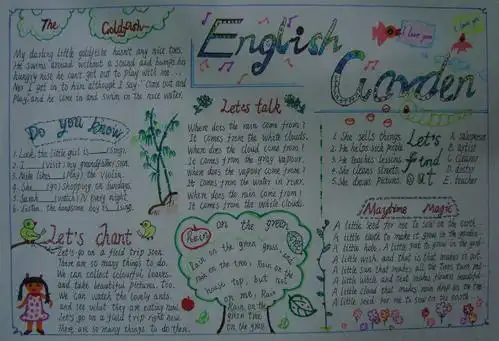 The Goldfish
My darling little goldfish hasn't any nice toes.
He swims around without a sound and bumps his
hungry nose he can't get out to play with me...
Nor I get in to him although I say "Come out and
Play" and he Come in and swim in the nice water.
English
Garden
I love you
Do you know
1. Look, the little girl is song.
2. I visit my grandfather soon.
3. Mike likes Play the violin.
4. She (go) Shopping on Sundays.
5. Sarah watch TV every night.
6. Listen, the handsome boy is sing.
Let's talk
Where does the rain come from?
It comes from the white clouds.
Where does the cloud come from?
It comes from the gray vapour.
Where does the vapour come from?
It comes from the water in river.
Where does the rain come from?
It comes from the white clouds.
Let's find out
1. She sells things. A. salesperson
2. He helps sick people. B. artist
3. He teaches lessons. C. cleaner
4. She cleans streets. D. doctor
5. She draws pictures. E. teacher
Let's Chant
Let's go on a field trip soon.
There are so many things to do.
We can collect colourful leaves.
and take beautiful pictures, too.
We can watch the lovely ants.
and see what they are eating now.
Let's go on a field trip right now.
There are so many things to do there.
Rain on the green
Rain on the green grass and
rain on the tree. Rain on the
house top, but not
on me. Rain
Rain on the
green tree
on the grey
Maytime Magic
A little seed for me to sow
A little earth to make it grow
A little hole. A little pat
A little wish and that is that
A little sun that
A little while and that makes flowers
A little cloud that makes rain
A little seed for me to sow